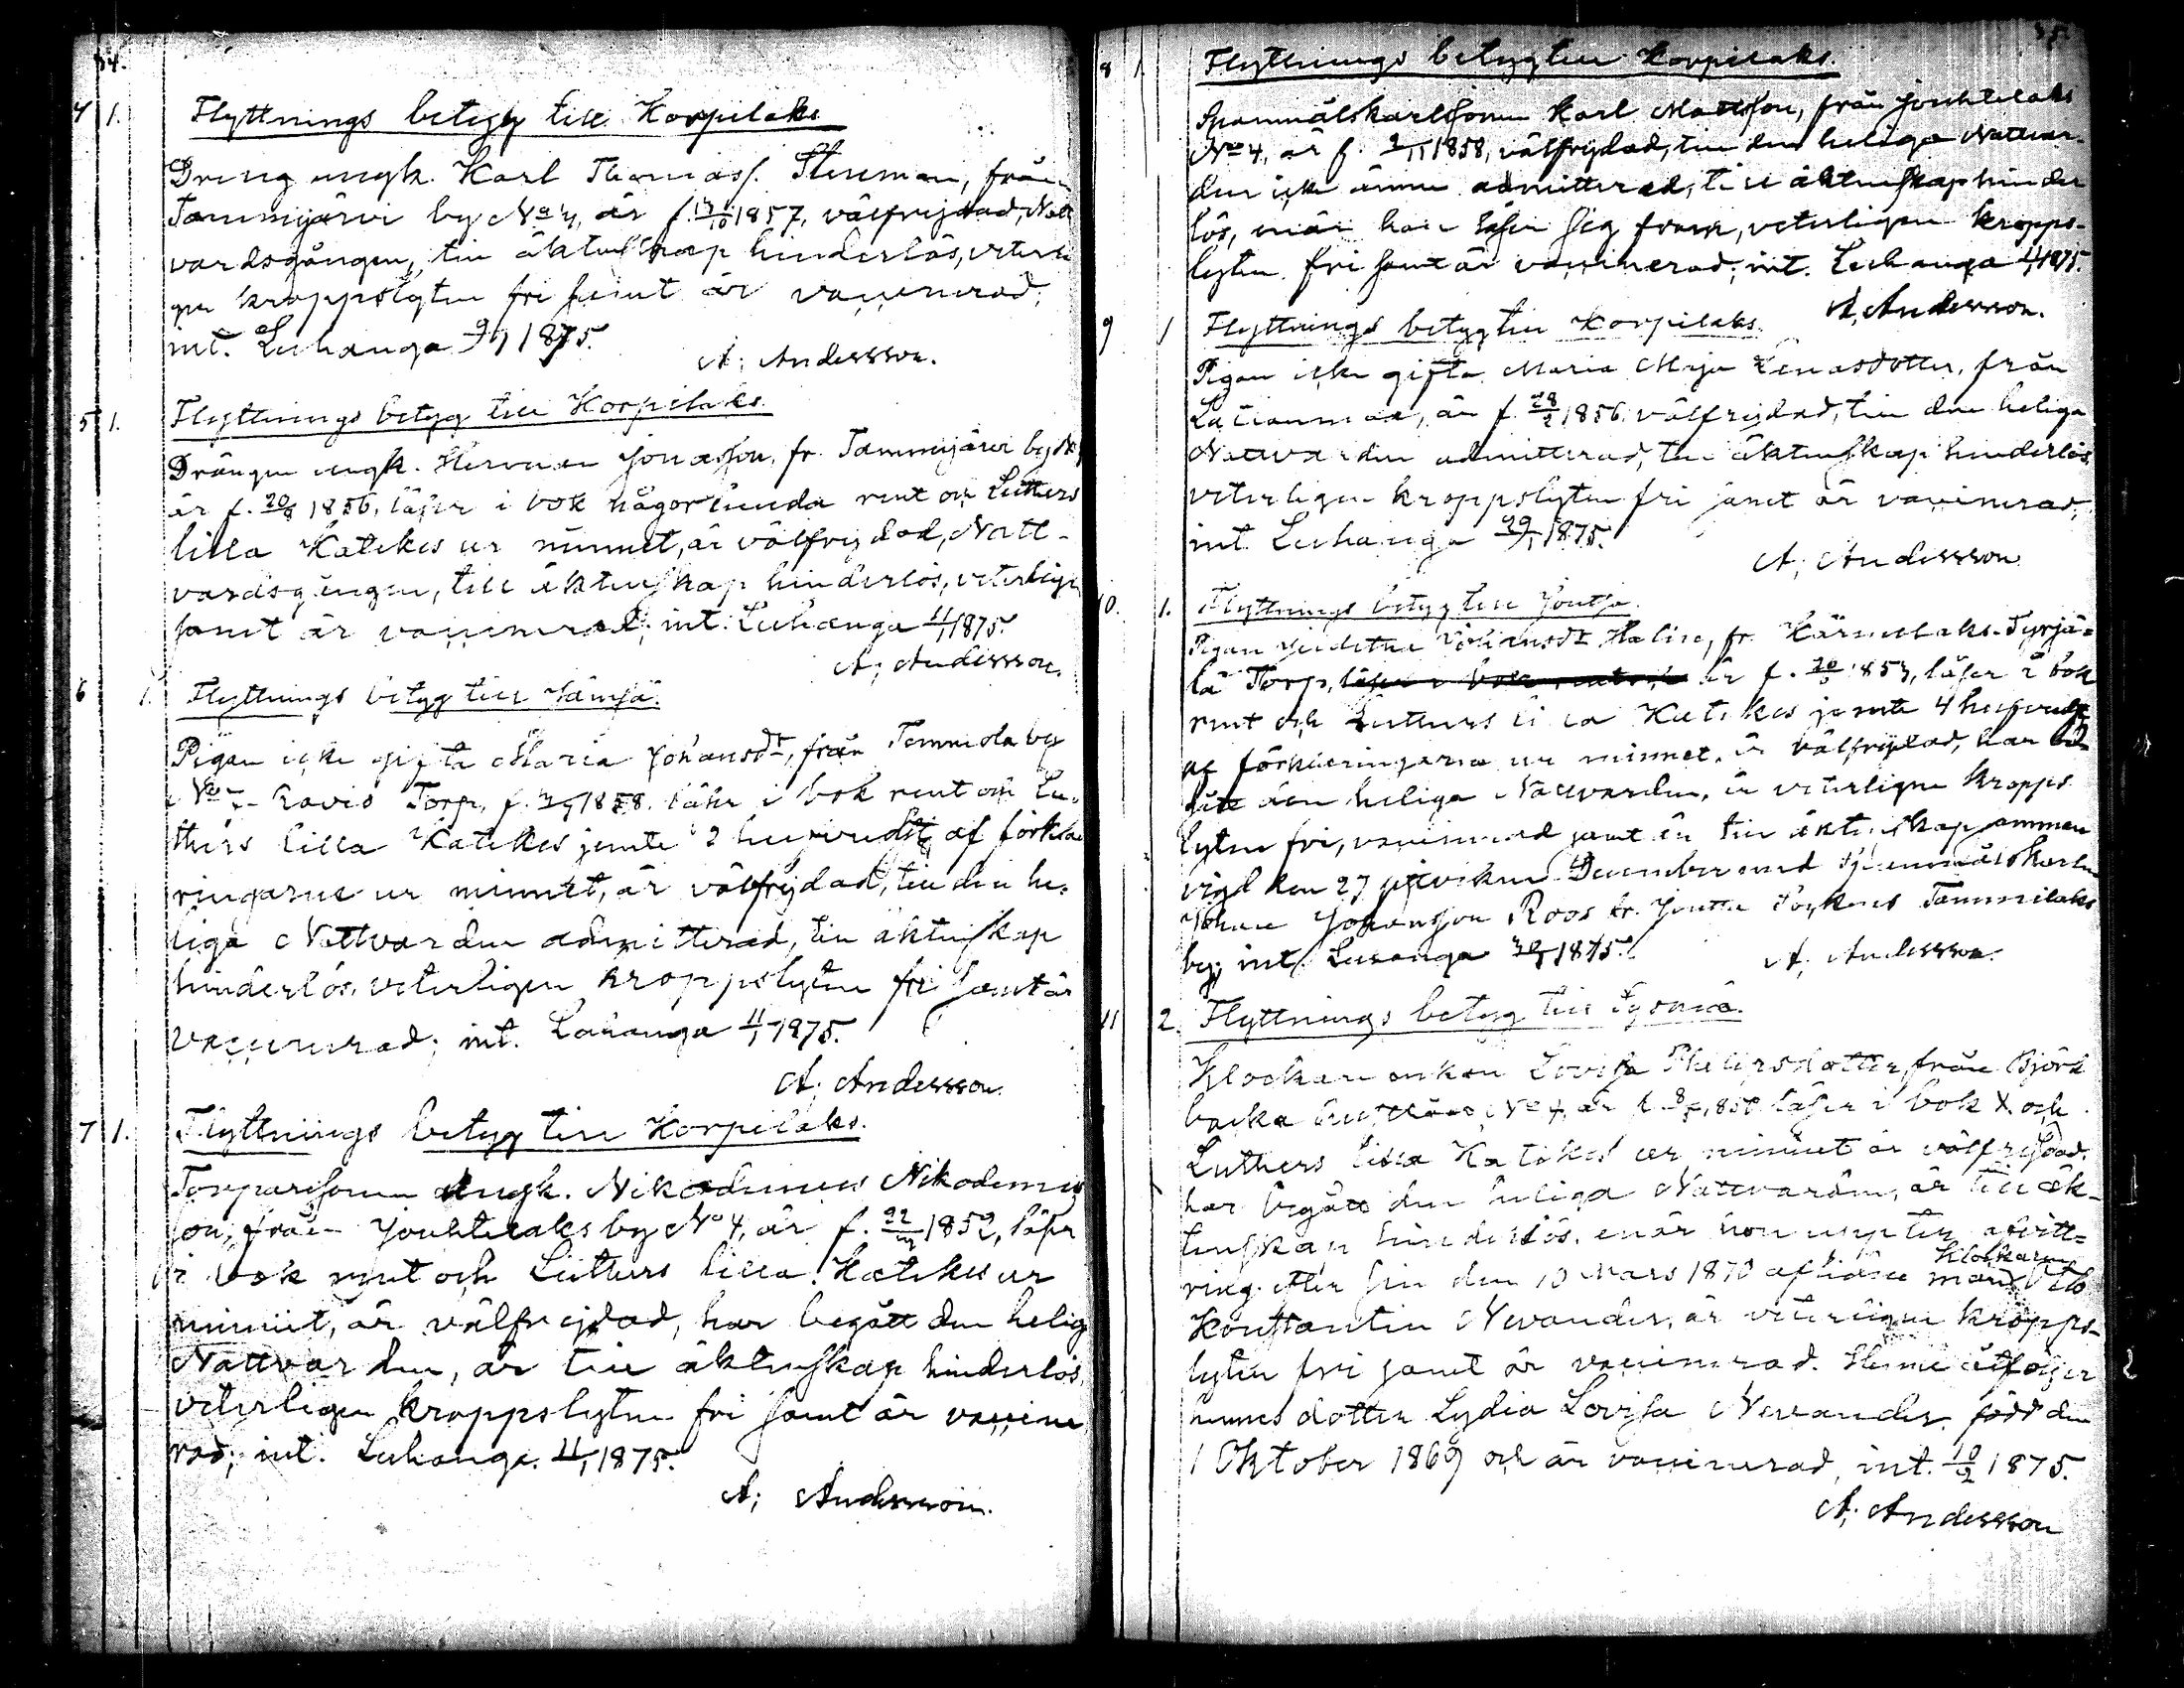 34.
4 1. Flyttnings betyg till Korpilaks
Dreng ungk. Karl Thomass. Steneman, från
Tammijärvi by No 4, är f. 13/10 1857, välfrejdad, Natt
vardsgången, till äktenskap hinderlös, veterli
gen kroppslyten fri samt är vaccinerad;
int. Luhanga 9/1 1875.
A; Andersson.
5 1. Flyttnings betyg till Korpilaks.
Drängen ungk. Herman Jonasson, fr. Tammijärvi by No
är f. 20/8 1856, läser i bok någorlunda rent och Luthers
lilla Katekes ur minnet, är välfrejdad, Natt-
vardsgången, till äktenskap hinderlös, veterligen
samt är vaccinerad; int. Luhanga 11/1 1875.
A; Andersson.
6 1. Flyttnings betyg till Jämsä.
Pigan icke gifta Maria Johansdr, från Tammola by
No Ravio Torp, f. 1858. läser i bok rent och Lu-
thers lilla Katekes jemte 2 hufvudst. af förkla
ringarne ur minnet, är välfrejdad, till den he-
liga Nattvarden admitterad, till äktenskap
hinderlös, veterligen kroppslyten fri samt är
vaccinerad; int. Luhanga 11/1 1875.
A; Andersson.
7 1. Flyttnings betyg till Korpilaks.
Torparsonen ungk. Nikodemus Nikodemus
son, från Jouhtilaks by No 4, är f. 22/ 1852, läser
i bok rent och Luthers lilla Katekes ur
minnet, är välfrejdad, har begått den helig
Nattvarden, är till äktenskap hinderlös,
veterligen kroppslyten fri samt är vaccine
rad; int. Luhanga. 11/1 1875.
A; Andersson.
8 1 Flyttnings betyg till Korpilaks.
Spanmålskarlssonen Karl Mattsson, från Jouhtilaks
No 4, är f. 9/11 1858, välfrejdad, till den heliga Nattvar-
den icke ännu admitterad, till äktenskap hinder
lös, enär han läser sig fram, veterligen kropps-
lyten fri samt är vaccinerad; int. Luhanga 11/1 1875.
A; Andersson.
9 1 Flyttnings betyg till Korpilaks.
Pigan icke gifta Maria Maja Lenasdotter, från
är f. 28/2 1856. välfrejdad, till den heliga
Nattvarden admitterad, till äktenskap hinderlös,
veterligen kroppslyten fri samt är vaccinerad;
int. Luhanga 29/1 1875.
A; Andersson
10. 1. Flyttnings betyg till Joutsa.
Pigan Johansdr Halin, fr. Kärmelaks Tyrjä-
lä Torp, är f. 1853, läser i bok
rent och Luthers lilla Katekes jemte 4 hufvudst
af förklaringarna ur minnet, är välfrejdad, har be
gått den heliga Nattvarden, är veterligen kropps
lyten fri, vaccinerad samt är till äktenskap samman
vigd den 27 December med Spanmålskarlen
Johan Johansson Roos fr. Joutsa Sockens Tammilaks
by; int. Luhanga 1875.
A; Andersson.
11 2. Flyttnings betyg till Sysmä.
Klockare enkan Lovisa Philipsdotter, från Björk
backa No 4, är f. 8/ 1850 läser i bok X och
Luthers lilla Katekes ur minnet är välfrejdad.
har begått den heliga Nattvarden, är till äk-
tenskap hinderlös, enär hon upptett afvitt=
ring efter sin den 10 Mars 1870 aflidne man Klockaren
Konstantin Nevander, är veterligen kropps-
lyten fri samt är vaccinerad. Henne åtföljer
hennes dotter Lydia Lovisa Nevander, född den
1 Oktober 1869 och är vaccinerad, int. 10/2 1875.
A; Andersson